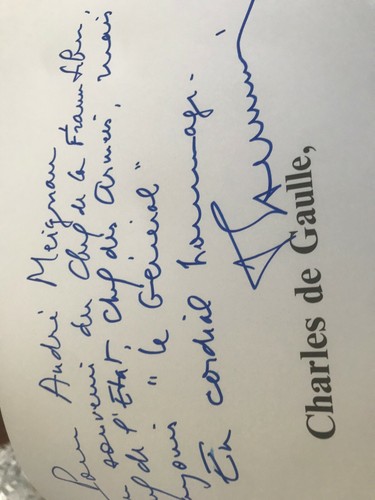 Pour André Meignan
souvenir du Chef de la France Libre,
de l'Etat, Chef des Armées, mais
"le Général"
En cordial hommage.
Charles de Gaulle,